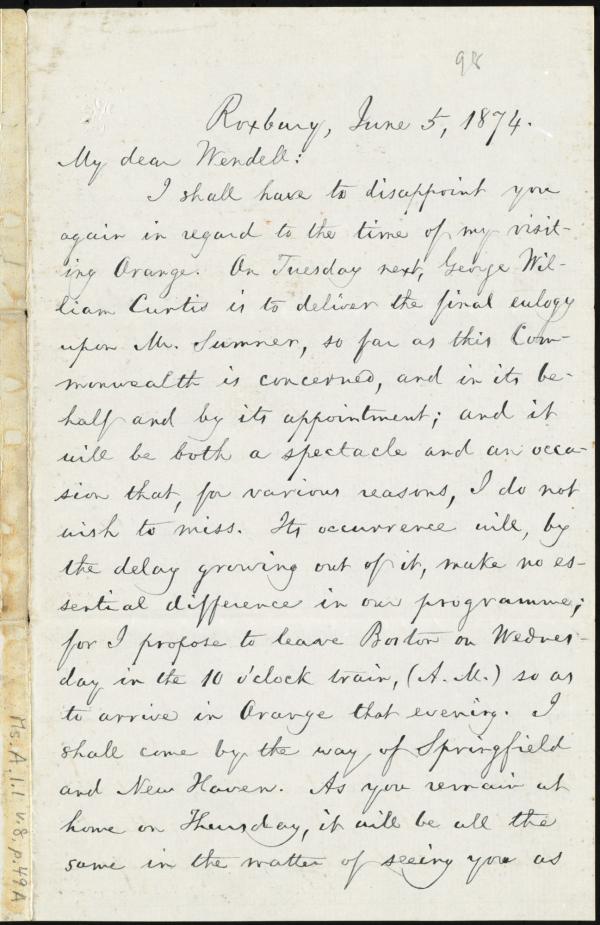 98
Roxbury, June 5, 1874.
My dear Wendell:
I shall have to disappoint you
again in regard to the time of my visit-
ing Orange. On Tuesday next, George Wil-
liam Curtis is to deliver the final eulogy
upon Mr. Sumner, so far as this Com-
monwealth is concerned, and in its be-
half and by its appointment; and it
will be both a spectacle and an occa-
sion that, for various reasons, I do not
wish to miss. Its occurrence will, by
the delay growing out of it, make no es-
sential difference in our programme;
for I propose to leave Boston on Wednes-
day in the 10 o'clock train, (A. M.) so as
to arrive in Orange that evening. I
shall come by the way of Springfield
and New Haven. As you remain at
home on Thursday, it will be all the
same in the matter of seeing you as
Ms. A. 1.1 v. 8, p. 49A